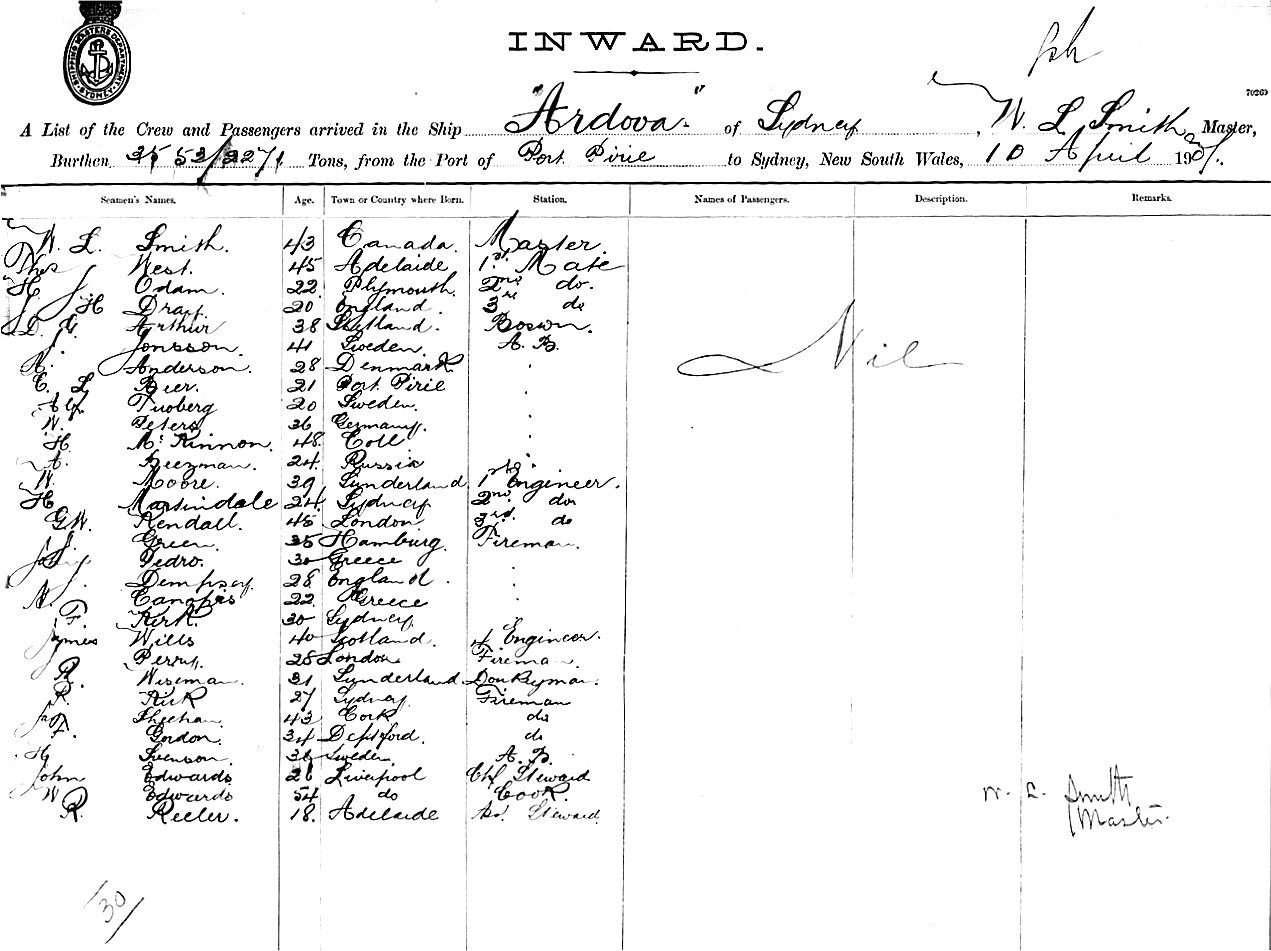 SHIPPING MASTERS DEPARTMENT SYDNEY
INWARD.
70269
A List of the Crew and Passengers arrived in the Ship "Ardova" of Sydney, W. L. Smith Master,
Burthen 3553/2271 Tons, from the Port of Port Pirie to Sydney, New South Wales, 10 April 190
Seamen's Names. Age. Town or Country where Born. Station. Names of Passengers. Description. Remarks.
W. L. Smith. 43 Canada. Master.
Thos West. 45 Adelaide 1st Mate
H. Odam. 22 Plymouth. 2nd do.
J H 20 England. 3rd do
D. G. Arthur 38 Shetland. Boswn.
J. Jonsson. 41 Sweden. A. B.
A. Anderson. 28 Denmark
C. L. Beer. 21 Port Pirie
20 Sweden.
W. Peters 36 Germany.
H. Mc Kinnon. 48 Coll
A. Beezman. 24 Russia
W. Moore. 39 Sunderland 1st Engineer.
H Martindale 24 Sydney 2nd do
G.W. Kendall. 45 London 3rd. do
J. Green. 35 Hamburg. Fireman.
Pedro. 30 Greece
J. Dempsey. 28 England.
N. 22 Greece
F. Kirk. 30 Sydney
James Wills 40 Scotland. 4 Engineer.
Perry. 28 London Fireman.
R. Wiseman. 31 Sunderland. Donkeyman.
R. Kirk 27 Sydney Fireman
Jas Sheehan. 43 Cork do
F. Gordon. 34 Deptford. do
H Svenson. Sweden. A. B.
John Edwards 26 Liverpool Chf Steward
W Edwards 54 do Cook.
R. Reeler. 18. Adelaide As. Steward
Nil
W. L. Smith
Master.
30